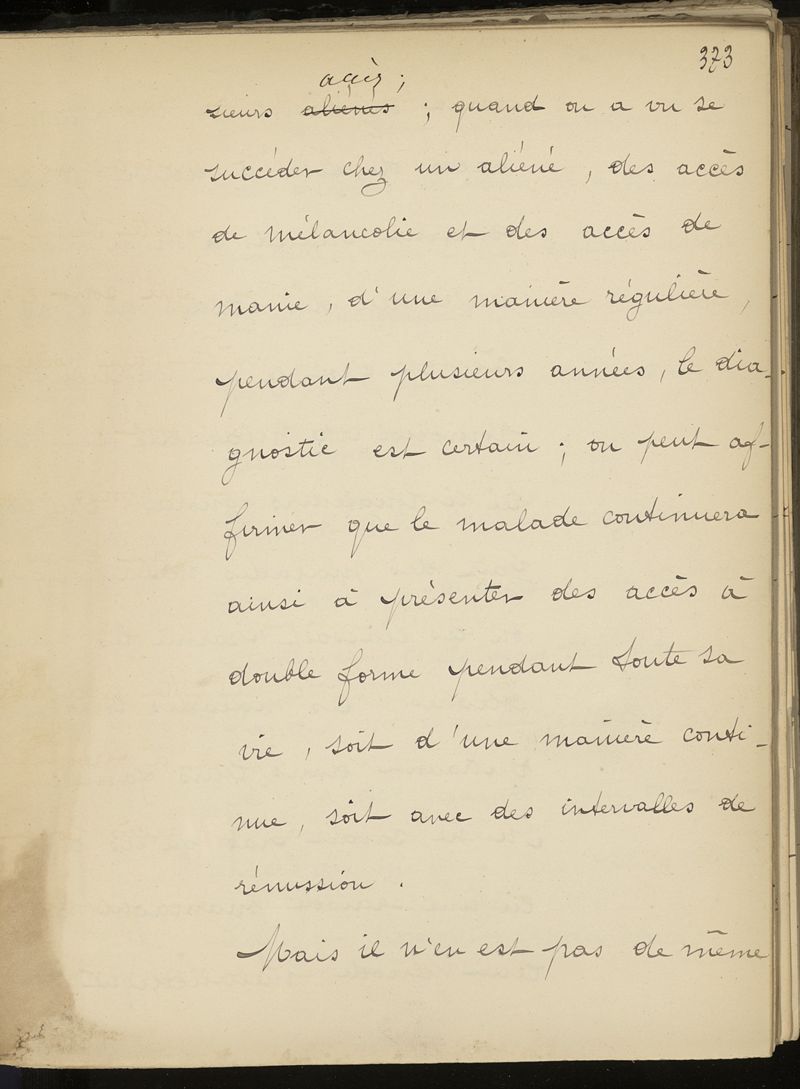 373
accès ;
sieurs aliénés ; quand on a vu se
succéder chez un aliéné, des accès
de mélancolie et des accès de
manie, d'une manière régulière,
pendant plusieurs années, le dia-
gnostic est certain ; on peut af-
firmer que le malade continuera
ainsi à présenter des accès à
double forme pendant toute sa
vie, soit d'une manière conti-
nue, soit avec des intervalles de
rémission.
Mais il n'en est pas de même